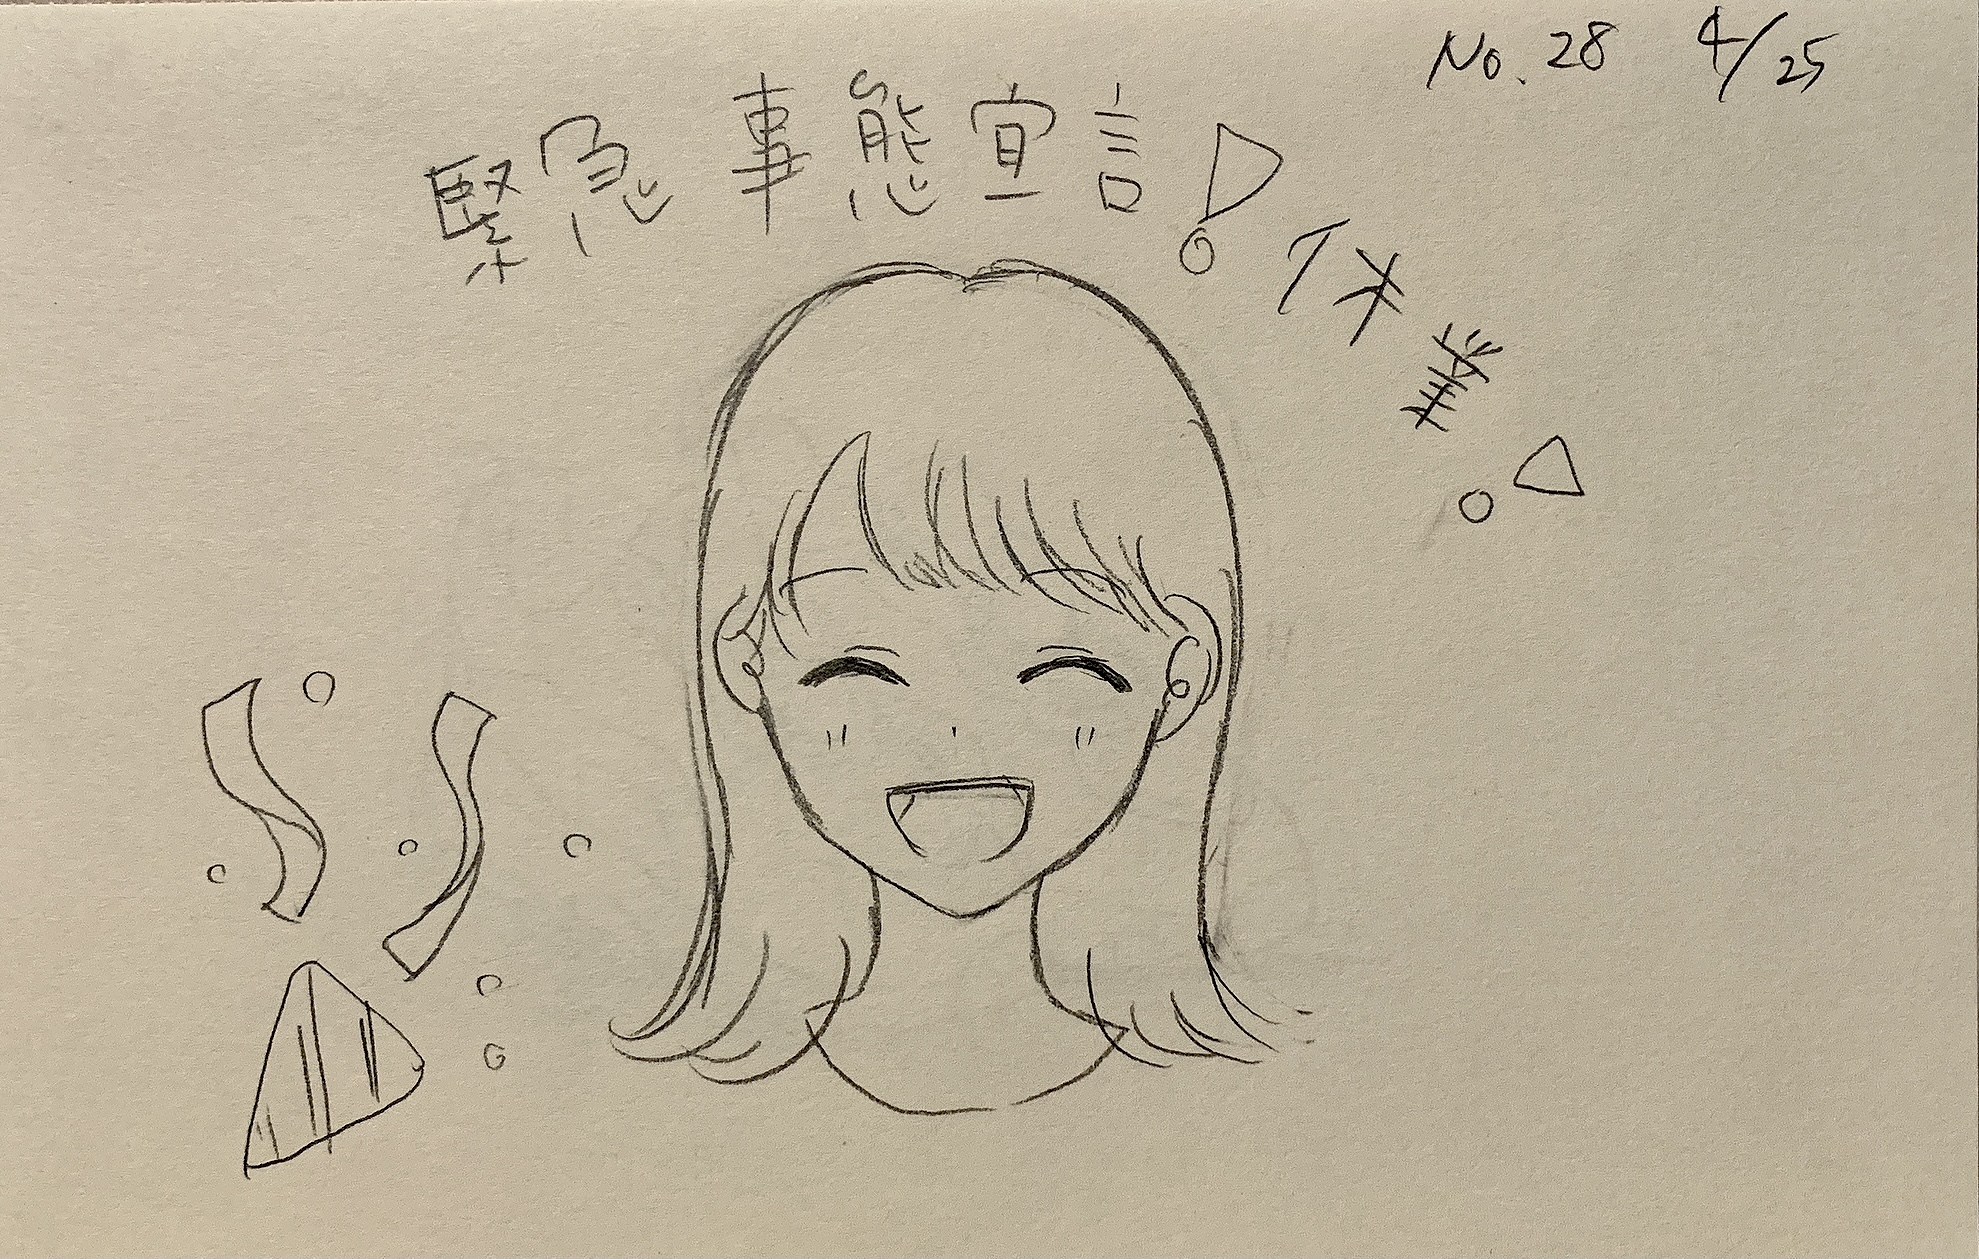 No. 28 4/25
緊急事態宣言!
休業!